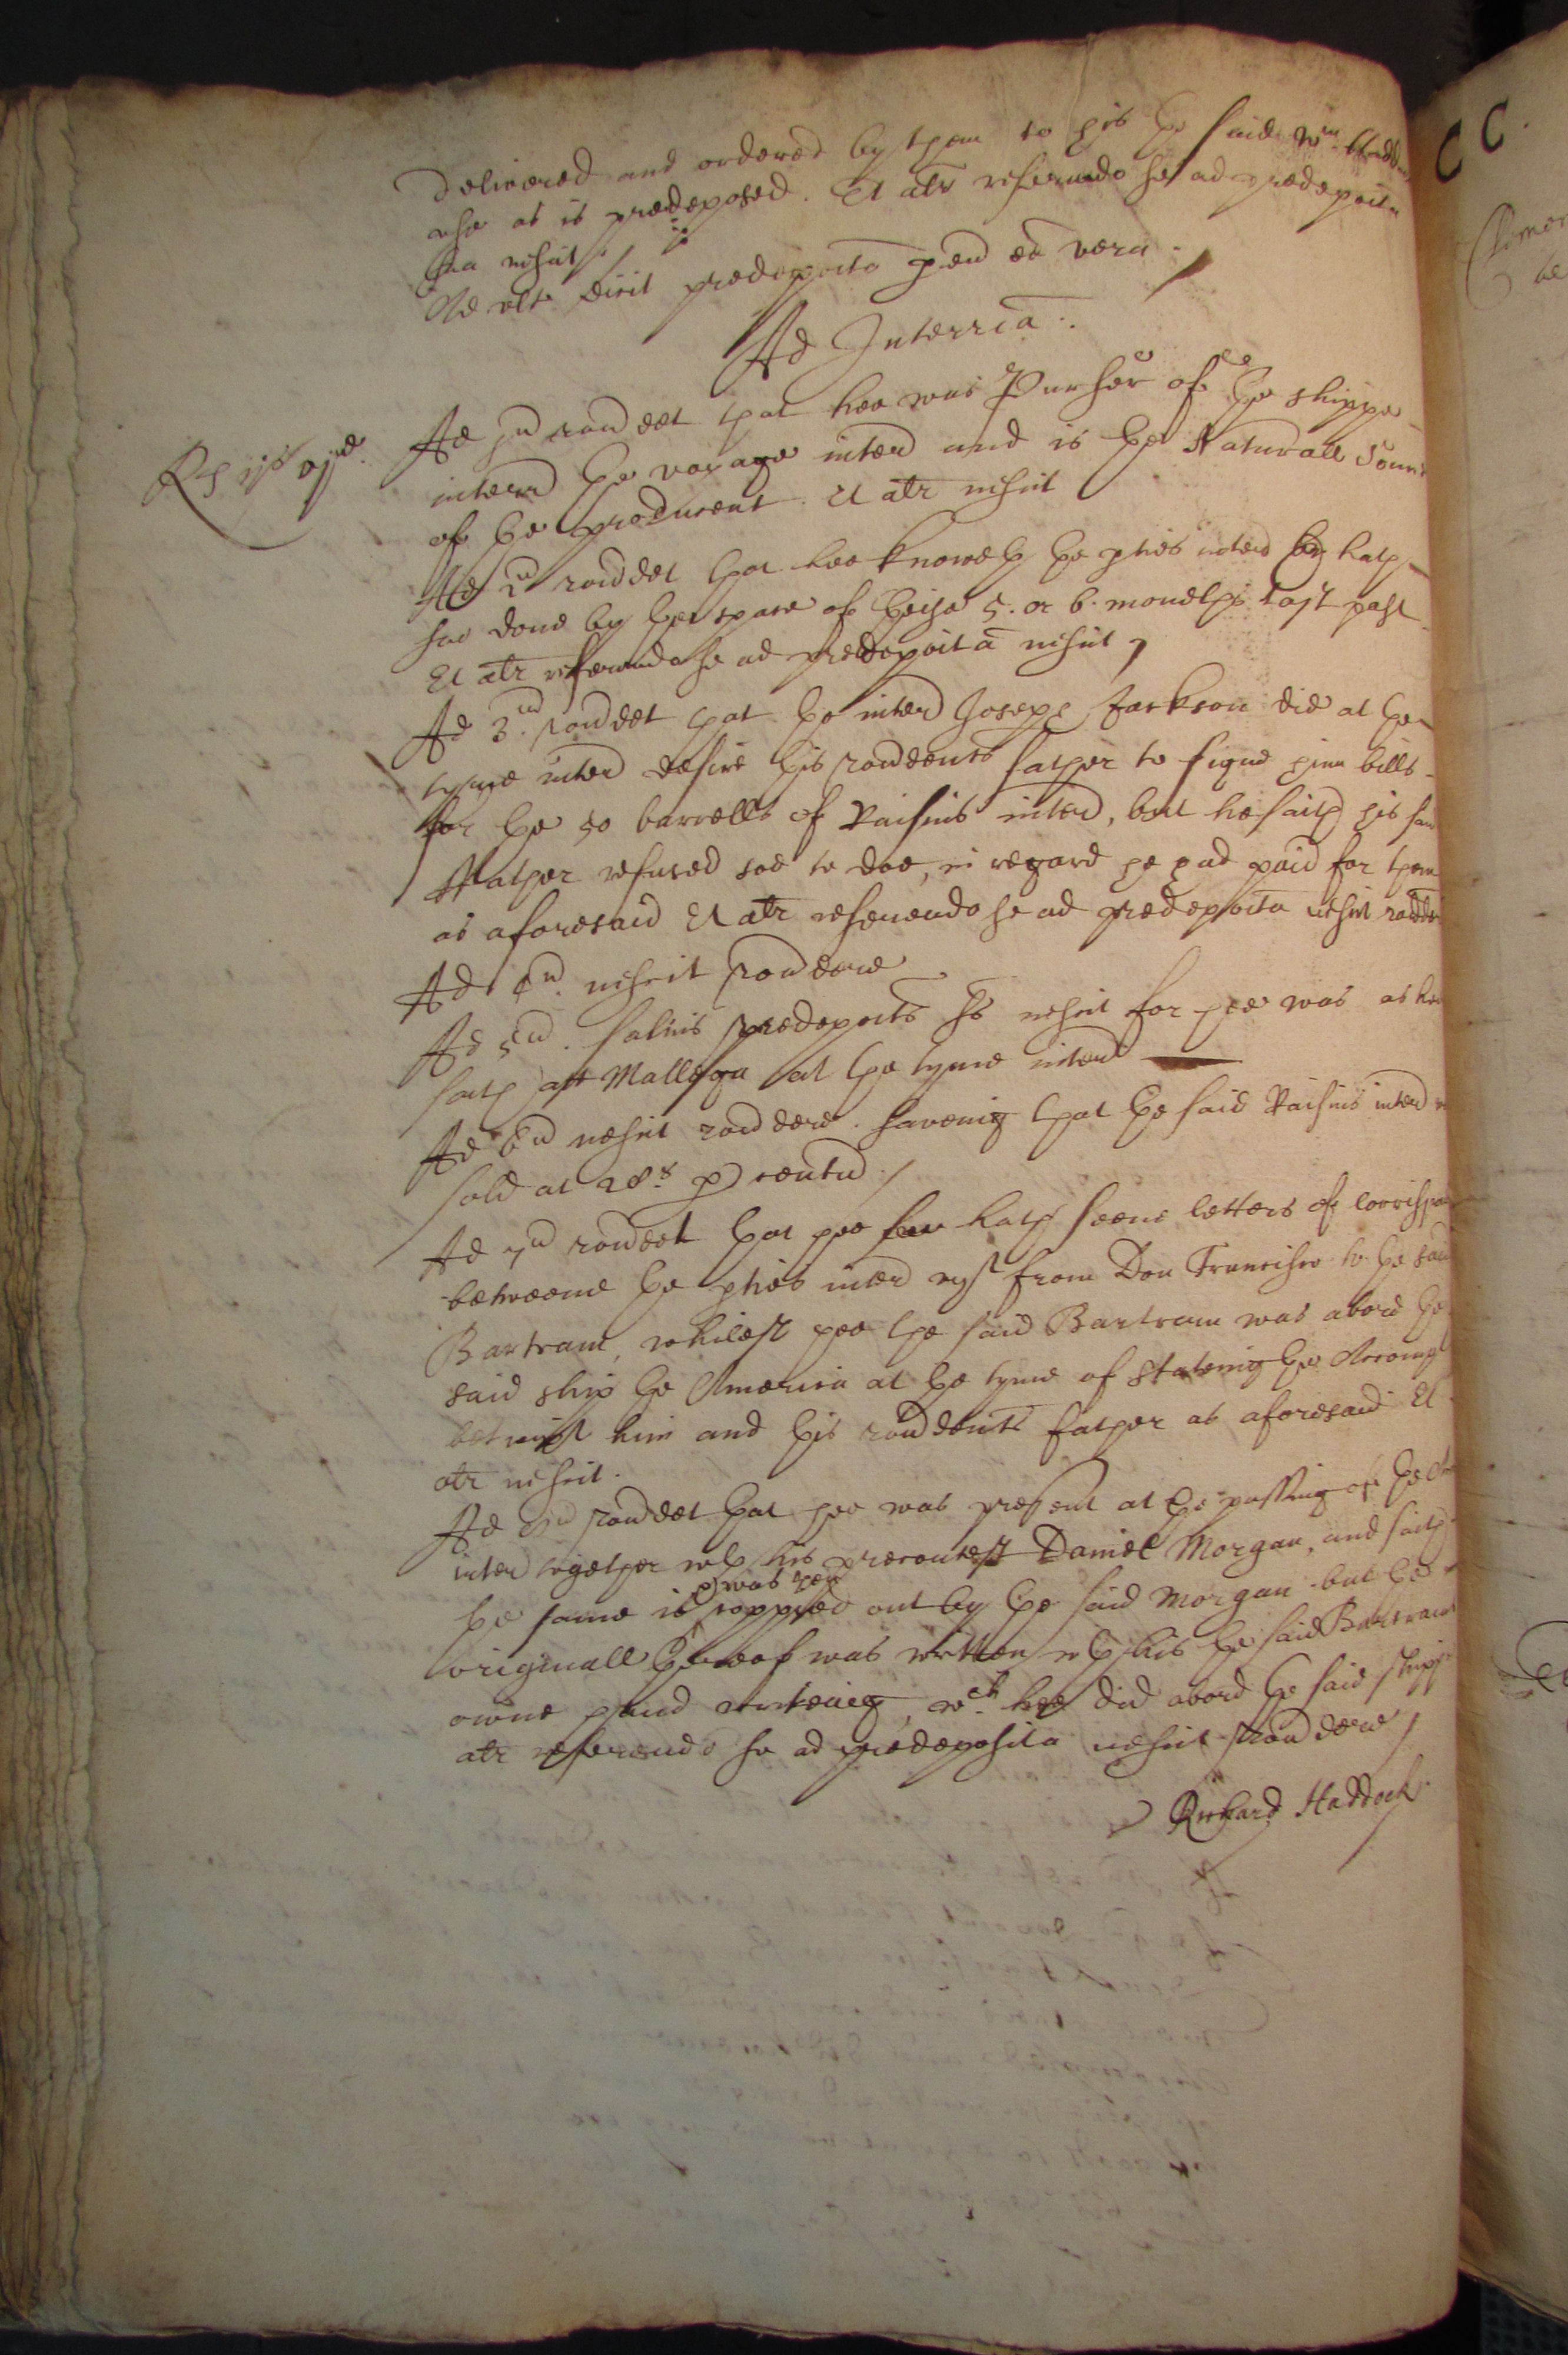 delivered and ordered by them to his the said Wm Haddock
use as is predeposed. Et alr referendo se ad predeposita
sua nescit
Ad ult dicit predeposita per eu ee vera.
Ad Interria:
Ad jum rondet that hee was Purser of the shippe
interr the voyage interr and is the Naturall Sonne
of the producent. Et alr nescit
Ad 2u rondet that hee knoweth the pties interr and hath
soe done by the space of theise 5. or 6. moneths last past
Et alr referendo se ad predeposita nescit
Ad 3.um rondet that the interr Joseph Jackson did at the
tyme interr desire this rondents father to signe him bills
for the 50 barrells of Raisins interr, but he saith his said
ffather refused soe to doe, in regard he had paid for them
as aforesaid Et alr referendo se ad predeposita nescit rondere
Ad 4um. nescit rondere
Ad 5um. salvis predepositis suis nescit for hee was as hee
saith att Mallega at the tyme interr
Ad 6um nescit rondere. saveing that the said Raisins interr
sold at 28s p centu
Ad 7um rondet that hee hath seene letters of corrispon
betweene the pties interr vizt from Don Francisco to the said
Bartram, whilest hee the said Bartram was abord the
said ship the America at the tyme of stateing the Accompt
betwixt him and this rondents father as aforesaid Et
alr nescit.
Ad um rondet that hee was present at the passing of the
interr together wth his precontest Daniel Morgan, and saith
the same is coppyed out by the said Morgan but the
was
originall thereof was written wth his the said Bartrams
owne hand writeing, wch hee did abord the said shippe
alr referendo se ad predeposita nescit rondere
Richard Haddock